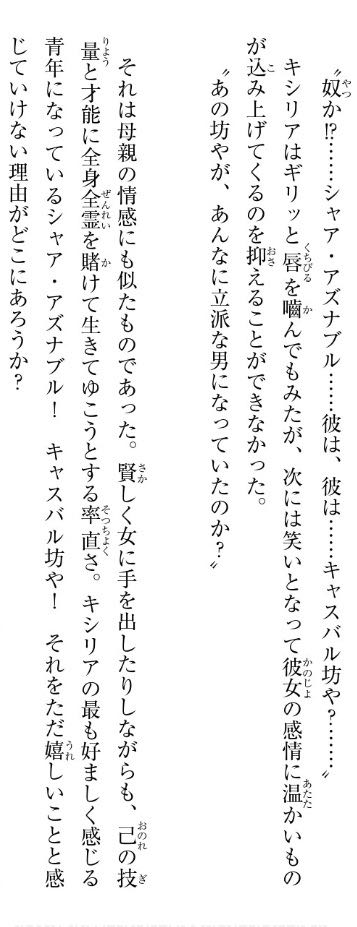 〝奴か⁉……シャア・アズナブル……彼は、彼は……キャスバル坊や?………〟
キシリアはギリッと唇を嚙んでもみたが、次には笑いとなって彼女の感情に温かいもの
が込み上げてくるのを抑えることができなかった。
〝あの坊やが、あんなに立派な男になっていたのか?〟
それは母親の情感にも似たものであった。賢しく女に手を出したりしながらも、己の技
量と才能に全身全霊を賭けて生きてゆこうとする率直さ。キシリアの最も好ましく感じる
青年になっているシャア・アズナブル! キャスバル坊や! それをただ嬉しいことと感
じていけない理由がどこにあろうか?